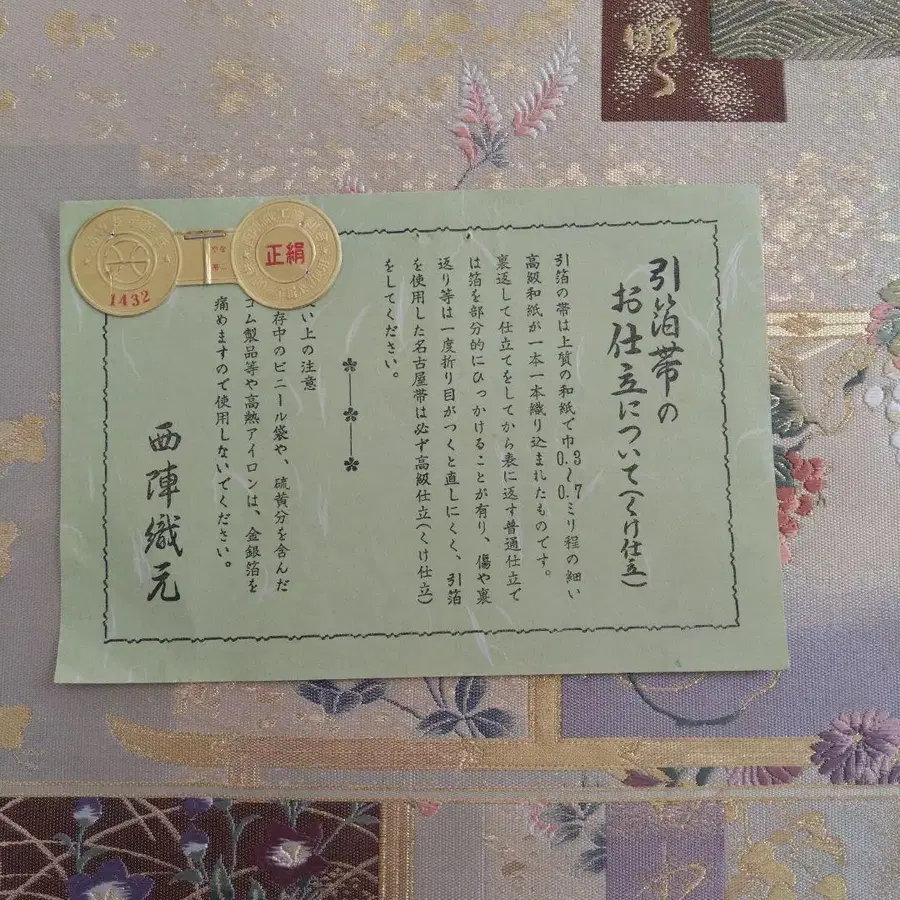 引箔帯の
お仕立について(くけ仕立)
引箔の帯は上質の和紙で巾0.3〜0.7ミリ程の細い
高級和紙が一本一本織り込まれたものです。
裏返して仕立てをしてから表に返す普通仕立で
は箔を部分的にひっかけることが有り、傷や裏
返り等は一度折り目がつくと直しにくく、引箔
を使用した名古屋帯は必ず高級仕立(くけ仕立)
をしてください。
い上の注意
存中のビニール袋や、硫黄分を含んだ
ゴム製品等や高熱アイロンは、金銀箔を
痛めますので使用しないでください。
西陣織元
正絹
1432